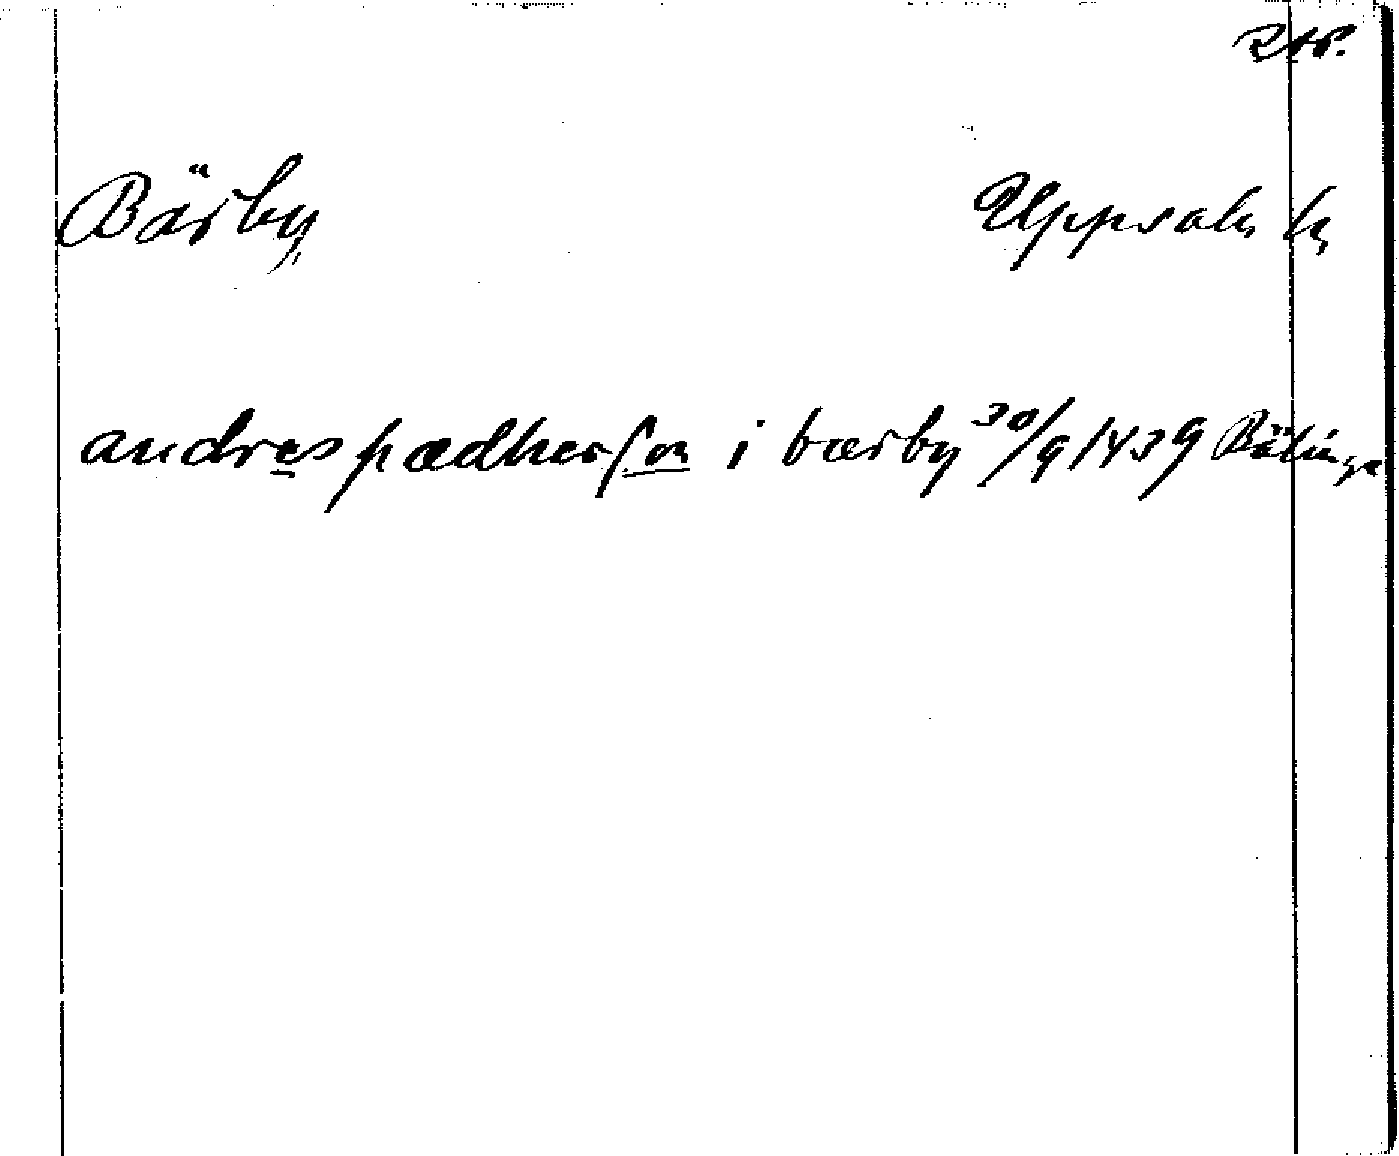 Bärby Uppsala
andres pædherson i bærby 30/9 1439 Bälinge